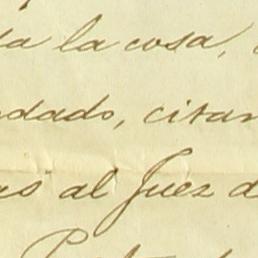 da la cosa,
ndado, citan
as al Juez d